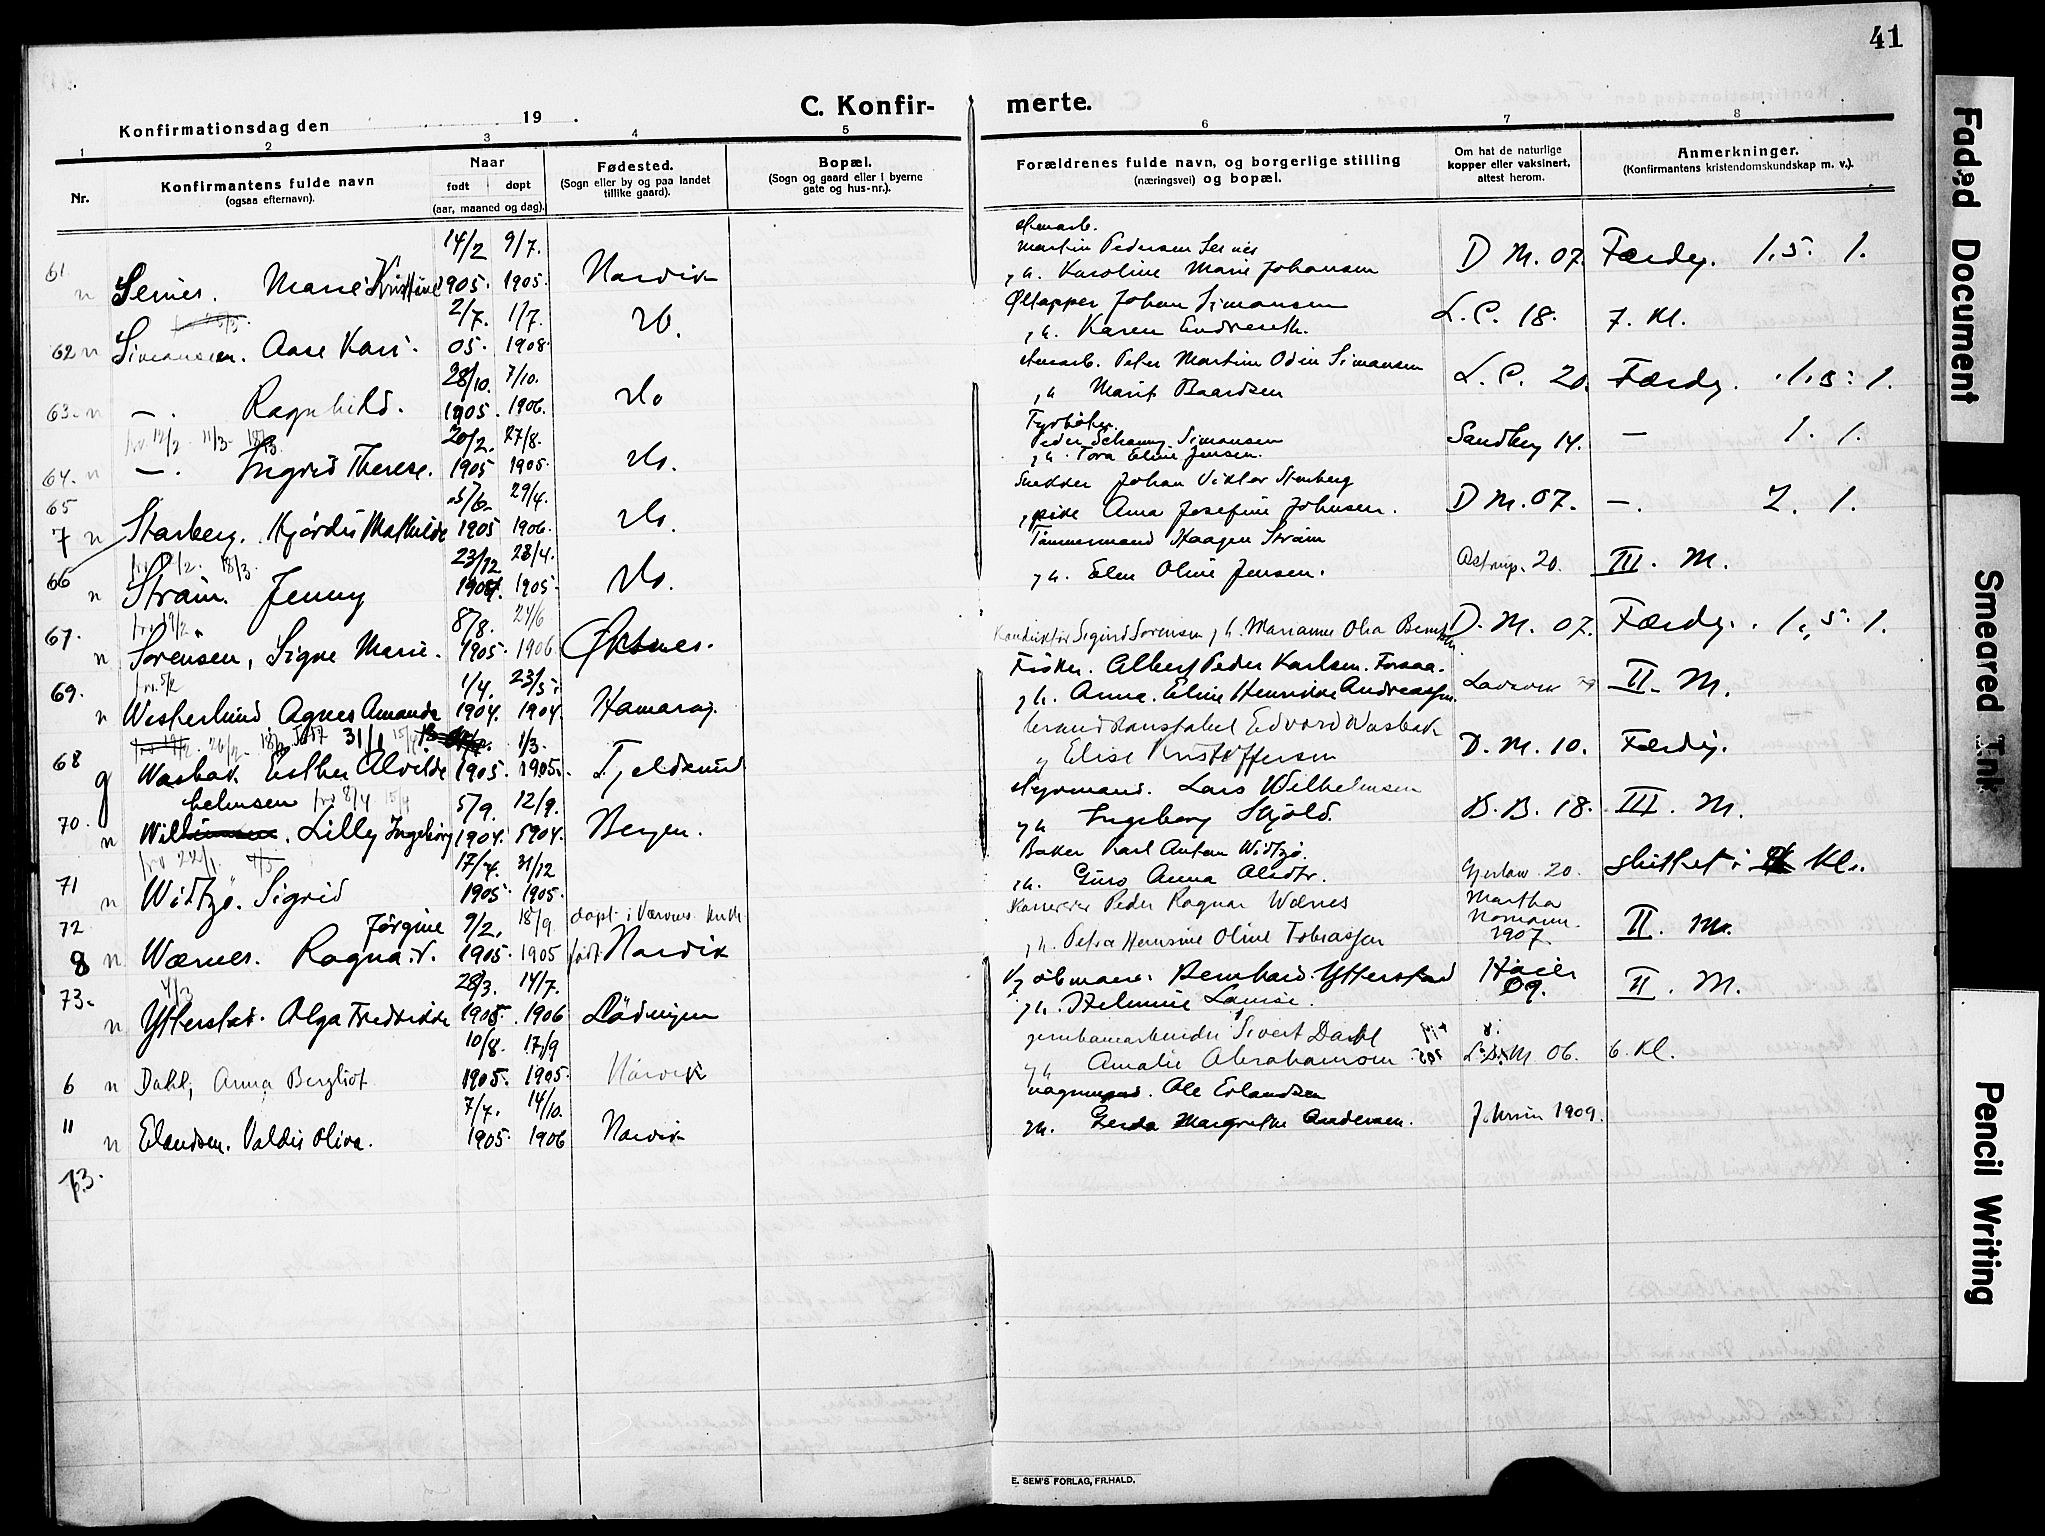 41
C. Konfir- merte.
Konfirmationsdag den 19 .
1 2 3 4 5 6 7 8
Nr.
Konfirmantens fulde navn
(ogsaa efternavn).
Naar
født døpt
(aar, maaned og dag).
Fødested.
(Sogn eller by og paa landet
tillike gaard).
Bopæl.
(Sogn og gaard eller i byerne
gate og hus-nr.).
Forældrenes fulde navn, og borgerlige stilling
(næringsvei) og bopæl.
Om hat de naturlige
kopper eller vaksinert,
attest herom.
Anmerkninger.
(Konfirmantens kristendomskundskap m. v.).
14/2 9/7.
61 n Marie Kristine 1905. 1905. Narvik
Martin Pedersen
g h. Karoline Marie Johansen D M. 07. Færdig. 1,5. 1.
2/7. 1/7.
62 n Simonsen. Aase Kari. 05. 1908. do.
Øltapper Johan Simonsen
g h. Karen L. C. 18. 7. Kl.
28/10. 7/10.
63. n —. Ragnhild. 1905. 1906. do
Peter Martin Odin Simonsen
g h Marit Baardsen L. C. 20. Færdig. 1,5. 1.
12/2 11/3
20/2. 27/8.
64. n —. Ingrid Therese. 1905 1905. do.
Fyrbøter.
Peder Simonsen
g h. Tora Eline Jensen. Sandberg 14. — 1. 1.
65
5/6. 29/4.
7 n Hjørdis Mathilde 1905 1906. do.
Snekker Johan Viktor Stenberg
pike Anna Josefine Johnsen. D M. 07. —. 2. 1.
18/3.
23/12 28/4.
66 n Strøm. Jenny 1904. 1905. do.
Tømmermand Haagen Strøm
g h. Elen Oline Jensen. Astrup. 20. III. M.
19/2
8/8. 24/6
67. n Sørensen, Signe Marie. 1905. 1906 Øksnes.
Konduktør Sigurd Sørensen g h. Marianne D. M. 07. Færdig. 1,5. 1.
5/2
1/4. 23/5.
69. n Westerlund Agnes Amanda 1904. 1904. Hamarøy.
Fisker. Albert Peder Karlsen. Forsaa.
g h. Anna. Eline Henrikke Andreassen. II. M.
26/2. 31/1 1/3.
68 g Wasbak Esther Alvilde 1905. 1905. Fjeldsund
Edvard Wasbak
g Elise Kristoffersen D. M. 10. Færdig.
helmsen 8/4
5/9. 12/9.
70. n Wil . Lilly Ingeborg 1904. 1904. Bergen.
Styrmand. Lars Wilhelmsen
g h Ingeborg Skjold. B. B. 18. III. M.
22/1.
17/7. 31/12
71 n Widtzø. Sigrid 1905. 1905.
Baker Karl Anton Widtzø.
g h. Guro Anna 20. sluttet i Kl.
72 Jørgine 9/2. 18/9 døpt i Værnes kirke
8 n Wærnes. Ragna. V. 1905. 1905 født Narvik
Peder Ragnar Wærnes
g h. Petra Hemsine Oline Tobiassen
Martha
Normann.
1907. II. M.
4/3
28/3. 14/7.
73. n Ytterstad. Olga Fredrikke 1905. 1906 Lødingen
Bernhard. Ytterstad
g h. Helmine Lovise. Høier
09. II. M.
10/8. 17/9
6 n Dahl, Anna Bergliot 1905. 1905. Narvik
jernbanearbeider Sivert Dahl
g h Amalie Abrahamsen M 06. 6. Kl.
7/7. 14/10.
11 n Erlandsen. Valdis Oliva. 1905. 1906 Narvik
vognmand. Ole Erlandsen
g h. Gerda Margrethe Andersen. 1909.
73.
E. SEM'S FORLAG, FR.HALD.
Faded Document
Smeared Ink
Pencil Writing